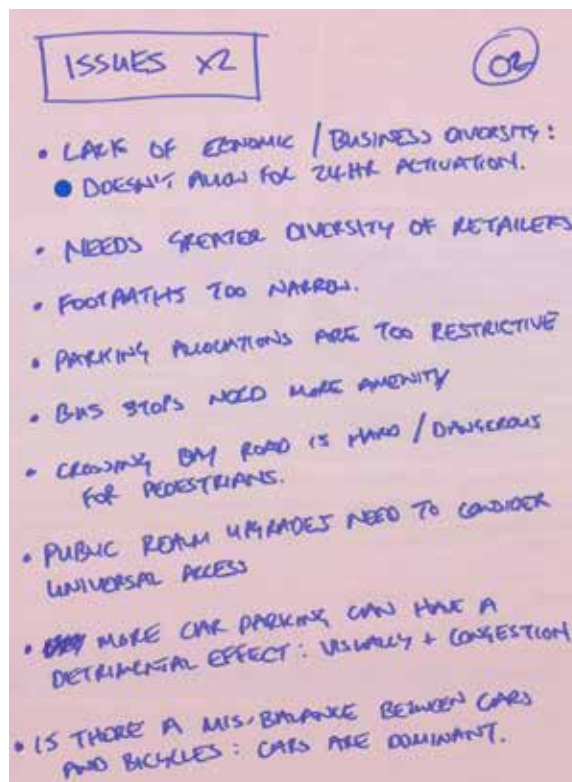 ISSUES x2
02
• LACK OF ECONOMIC / BUSINESS DIVERSITY :
● DOESN'T ALLOW FOR 24HR ACTIVATION.
• NEEDS GREATER DIVERSITY OF RETAILERS
• FOOTPATHS TOO NARROW.
• PARKING ALLOCATIONS ARE TOO RESTRICTIVE
• BUS STOPS NEED MORE AMENITY
• CROSSING BAY ROAD IS HARD / DANGEROUS
FOR PEDESTRIANS.
• PUBLIC REALM UPGRADES NEED TO CONSIDER
UNIVERSAL ACCESS
• MORE CAR PARKING CAN HAVE A
DETRIMENTAL EFFECT : VISUALLY + CONGESTION
• IS THERE A MIS-BALANCE BETWEEN CARS
AND BICYCLES : CARS ARE DOMINANT.